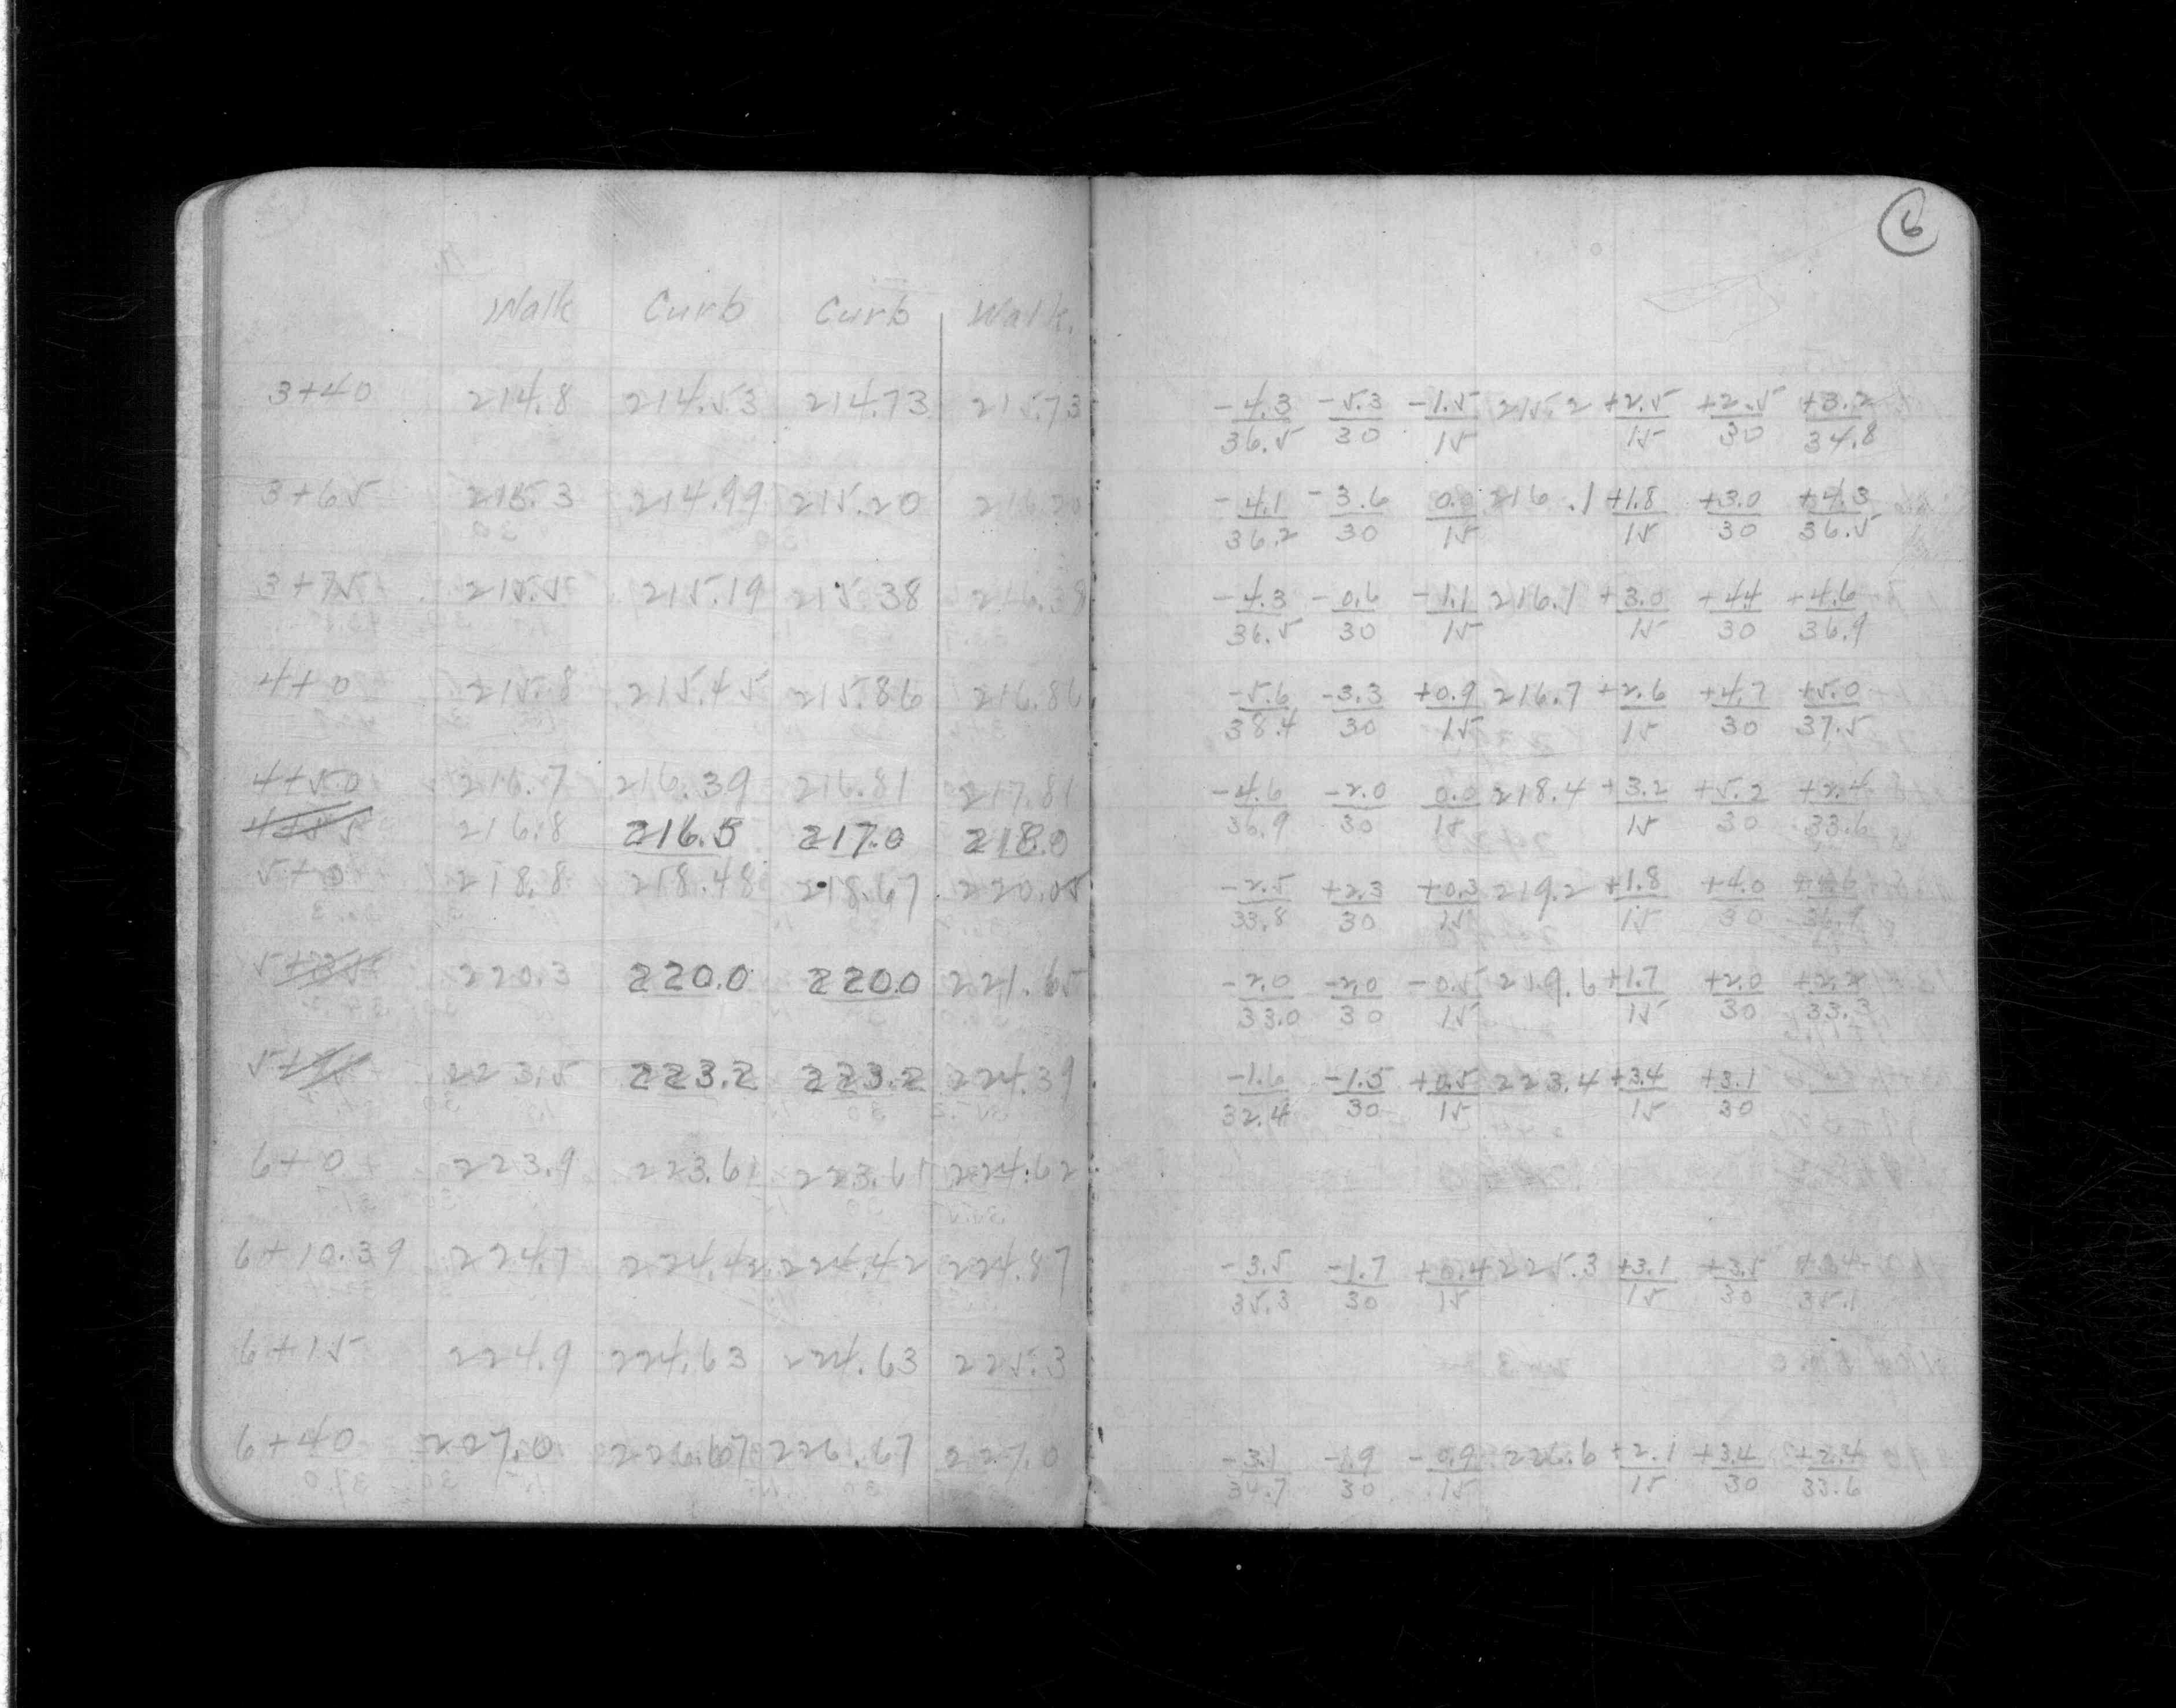 6
Walk Curb Curb Walk.
3+40 214.8 214.53 214.73 215.73
3+65 215.3 214.99 215.20 216.20
3+75 215.5 215.19 215.38 216.38
4+0 215.8 215.45 215.86 216.86
4+50 216.7 216.39 216.81 217.81
216.8 216.5 217.0 218.0
5+0 218.8 218.48 218.67 220.05
220.3 220.0 220.0 221.65
223.5 223.2 223.2 224.39
6+0 223.9 223.61 223.61 224.62
6+10.39 224.7 224.42 224.42 224.87
6+15 224.9 224.63 224.63 225.3
6+40 227.0 226.67 226.67 227.0
-4.3 -5.3 -1.5 215.2 +2.5 +2.5 +3.2
36.5 30 15 15 30 34.8
-4.1 -3.6 0.0 216.1 +1.8 +3.0 +4.3
36.2 30 15 15 30 36.5
-4.3 -0.6 -1.1 216.1 +3.0 +4.4 +4.6
36.5 30 15 15 30 36.9
-5.6 -3.3 +0.9 216.7 +2.6 +4.7 +5.0
38.4 30 15 15 30 37.5
-4.6 -2.0 0.0 218.4 +3.2 +5.2 +2.4
36.9 30 15 15 30 33.6
-2.5 +2.3 +0.3 219.2 +1.8 +4.0 +4.6
33.8 30 15 15 30 36.9
-2.0 -2.0 -0.5 219.6 +1.7 +2.0 +2.2
33.0 30 15 15 30 33.3
-1.6 -1.5 +0.5 223.4 +3.4 +3.1
32.4 30 15 15 30
-3.5 -1.7 +0.4 225.3 +3.1 +3.5 +3.4
35.3 30 15 15 30 35.1
-3.1 -1.9 -0.9 226.6 +2.1 +3.4 +2.4
34.7 30 15 15 30 33.6